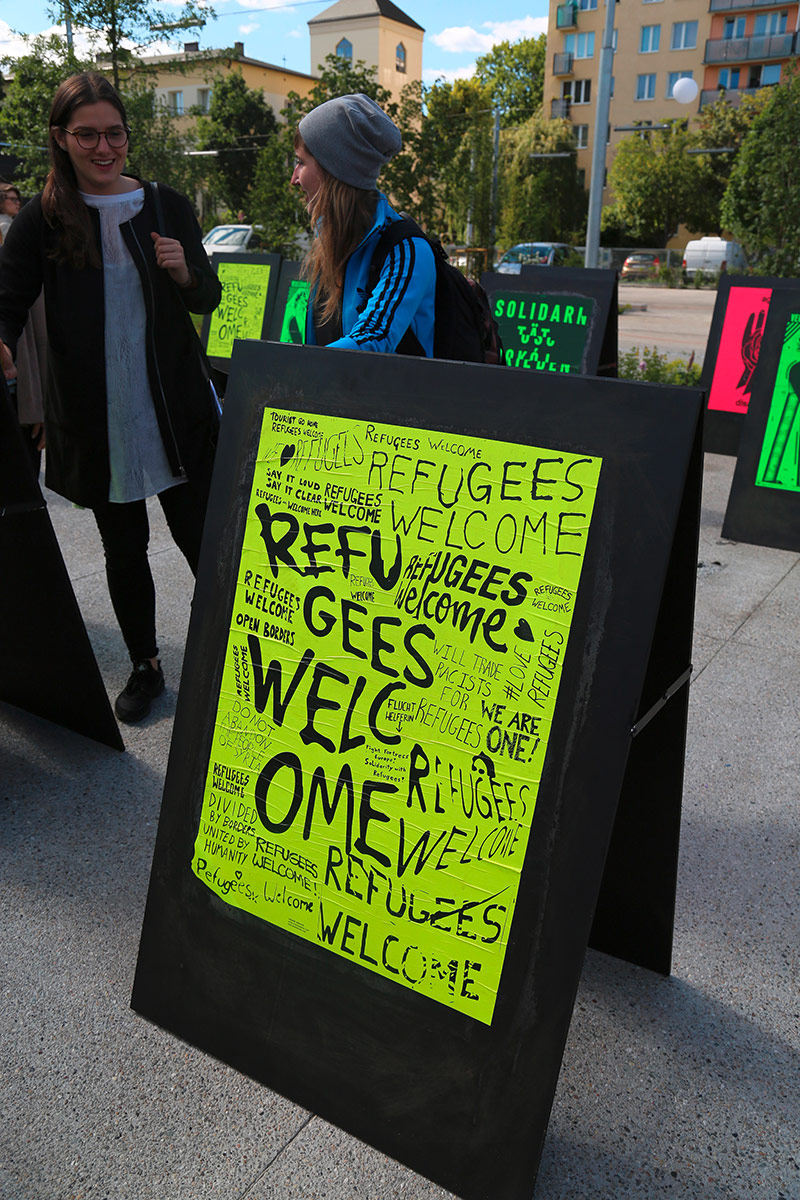 TOURIST GO HOME
REFUGEES WELCOME
REFUGEES WELCOME
REFUGEES
REFUGEES
WELCOME
SAY IT LOUD
SAY IT CLEAR
REFUGEES WELCOME HERE
REFUGEES
WELCOME
REFU
GEES
WELC
OME
REFUGEES
WELCOME
REFUGEES
welcome
REFUGEES
WELCOME
REFUGEES
WELCOME
OPEN BORDERS
REFUGEES
WELCOME
WILL TRADE
RACISTS
FOR
REFUGEES
#LOVE
REFUGEES
WE ARE
ONE!
FLUCHT
HELFERIN
Fight Fortress
Europe!
Solidarity with
Refugees!
DO NOT
ABANDON
PEOPLE
OF SYRIA
REFUGEES
WELCOME
REFUGEES
WELCOME
DIVIDED
BY BORDERS
UNITED BY
HUMANITY
REFUGEES
WELCOME!
Refugees
Welcome
REFUGEES
WELCOME
REFU
GEES
WELC
OME
SOLIDARI
TÄT